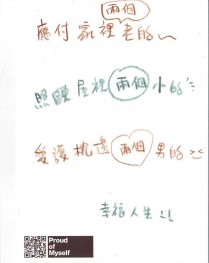 兩個
應付家裡老的~
照顧屋裡兩個小的
愛護枕邊兩個男的><
幸福人生
Proud
of
Myself